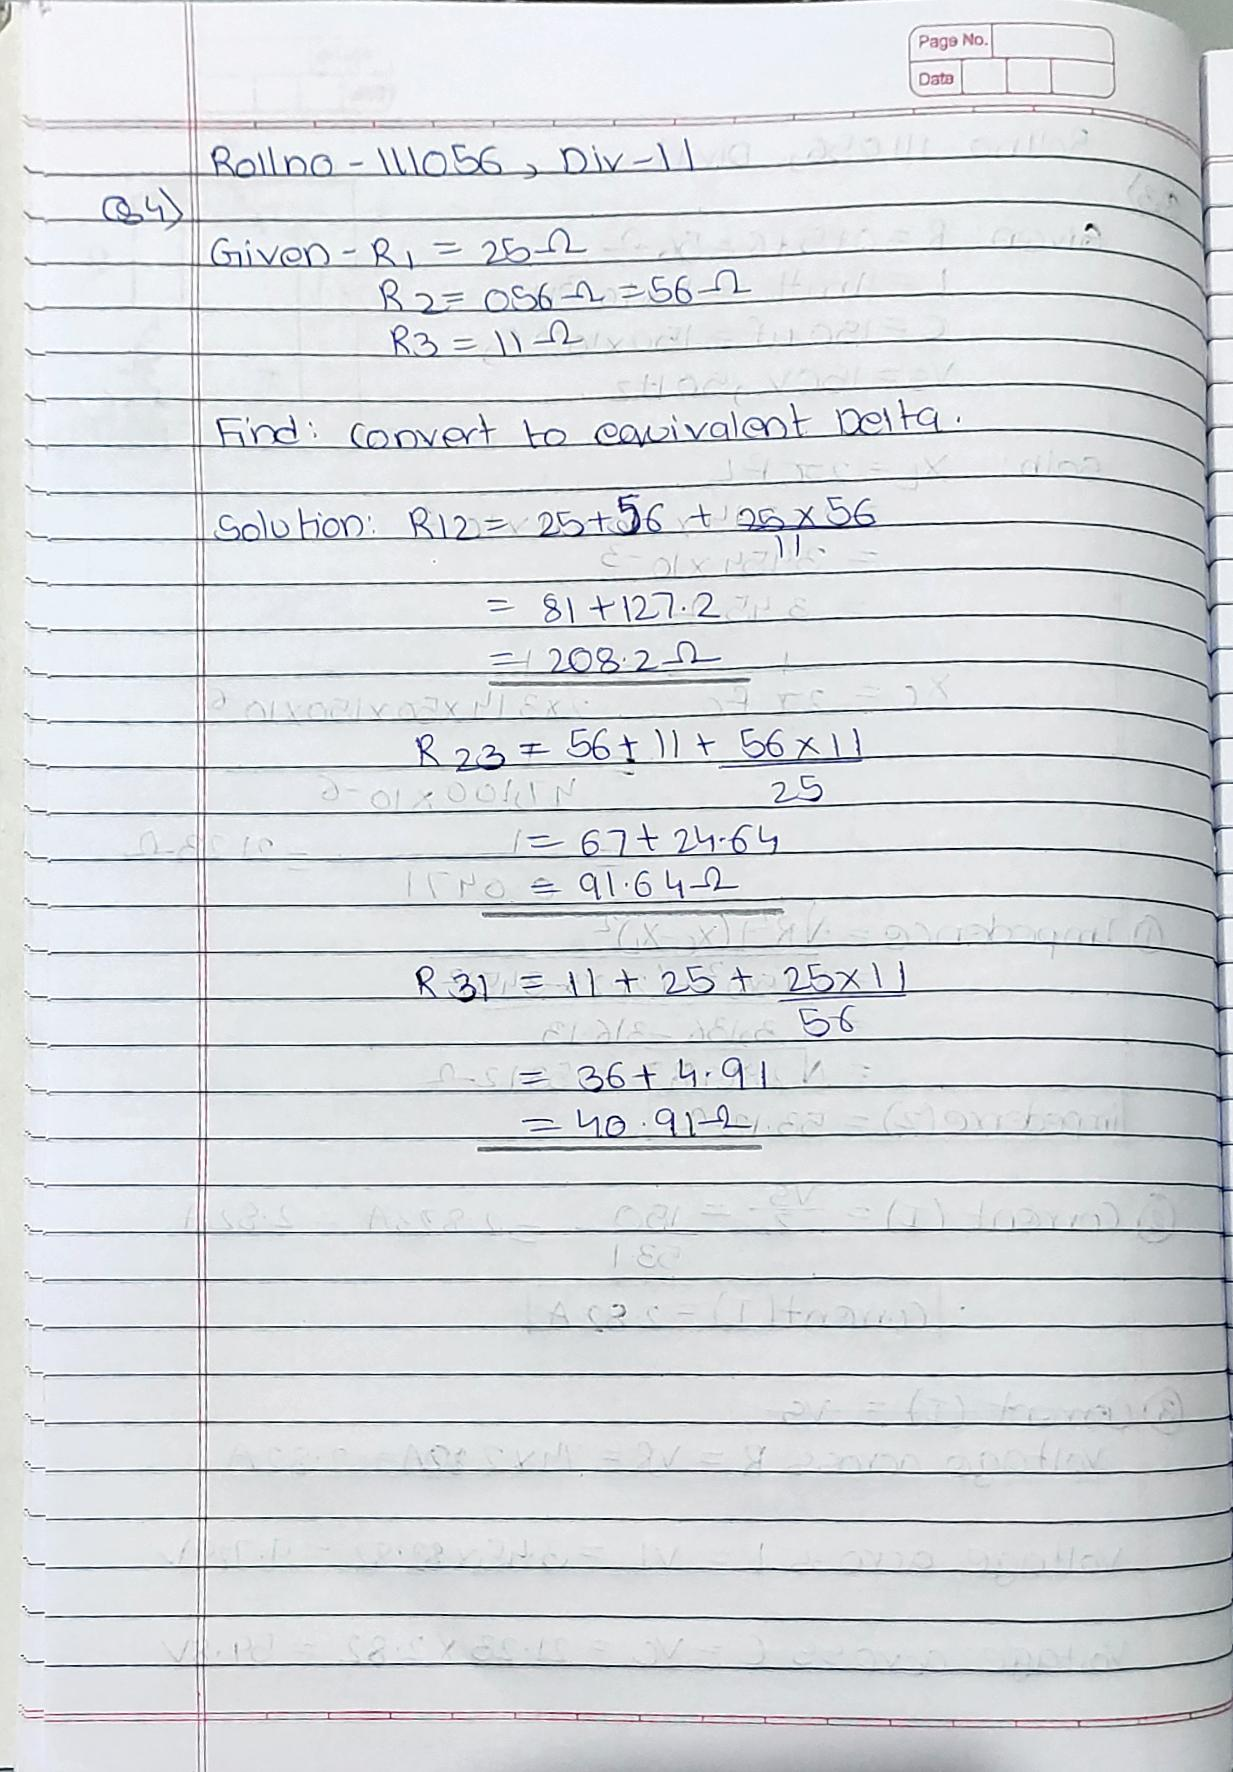 Page No.
Date
Rollno - 111056, Div-11
Q4)
Given - R1 = 25Ω
R2 = 056Ω = 56Ω
R3 = 11Ω
Find: convert to equivalent Delta.
Solution: R12 = 25+56 + 25×56
11
= 81+127.2
= 208.2Ω
R23 = 56+11+ 56×11
25
= 67+24.64
= 91.64Ω
R31 = 11+25+ 25×11
56
= 36+4.91
= 40.91Ω